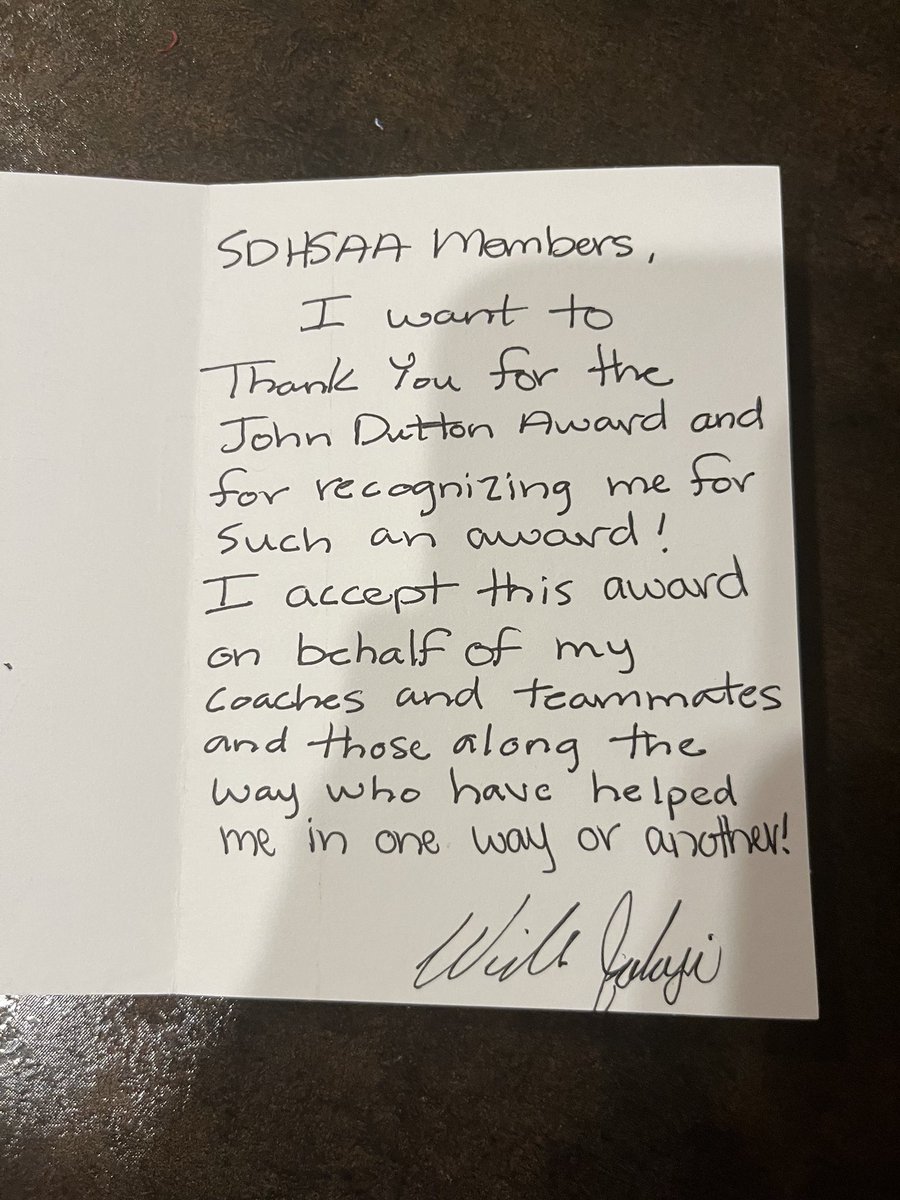 SDHSAA Members,
I want to
Thank You for the
John Dutton Award and
for recognizing me for
such an award!
I accept this award
on behalf of my
coaches and teammates
and those along the
way who have helped
me in one way or another!